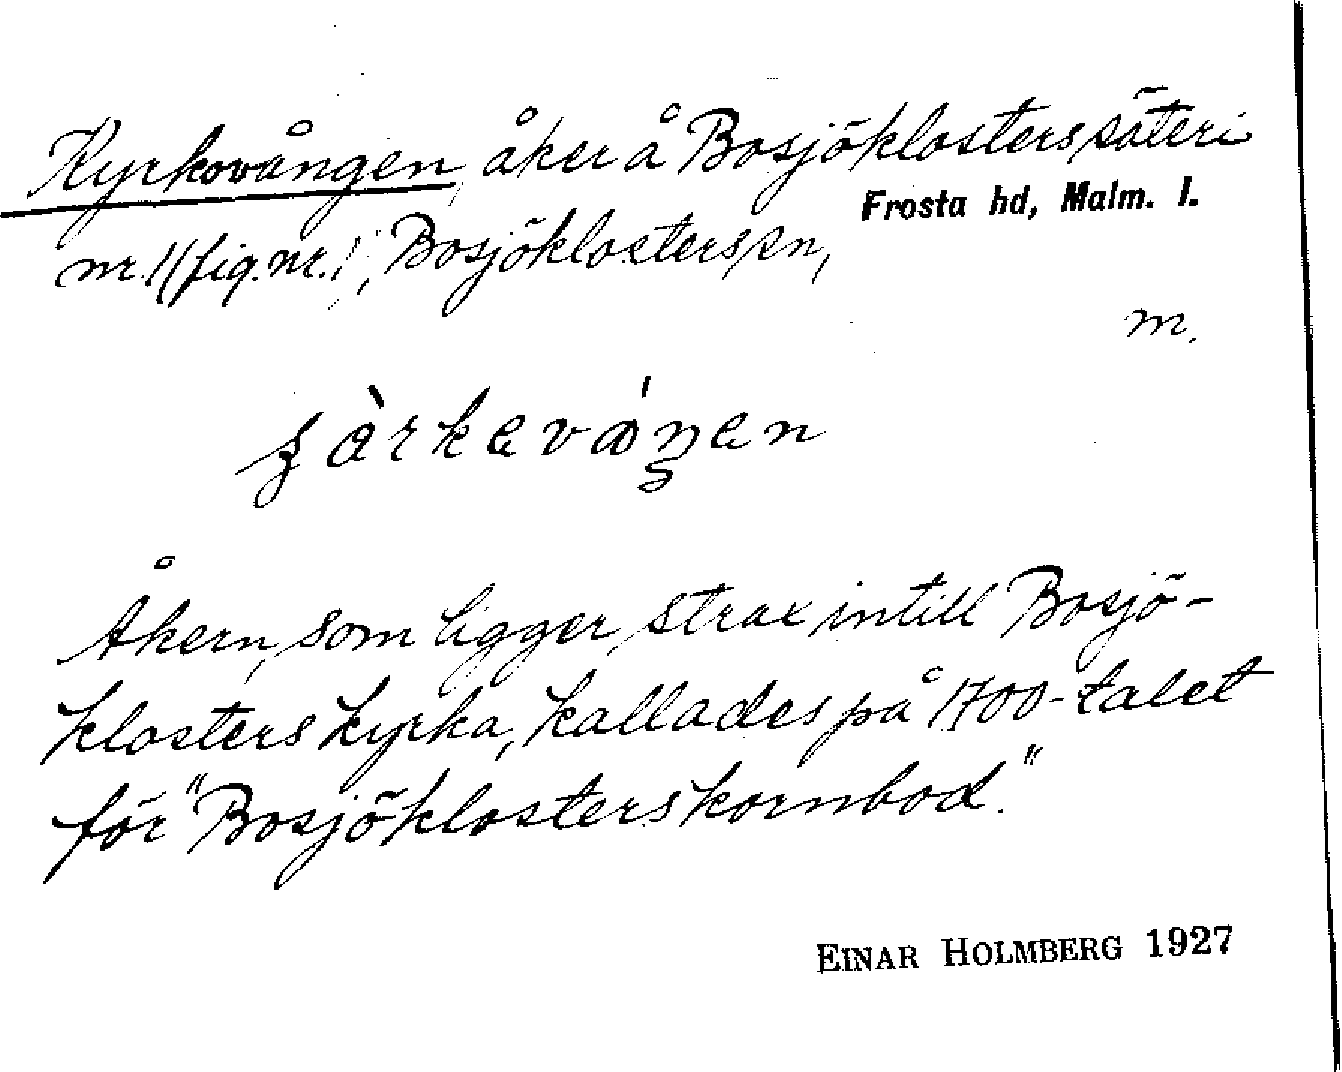 Kyrkovången, åker å Bosjöklosters säteri
Frosta hd, Malm. l.
nr. 1 (fig. nr. 1, Bosjöklosters sn,
m.
Åkern, som ligger strax intill Bosjö-
klosters kyrka, kallades på 1700-talet
för "Bosjöklosters kornbod."
EINAR HOLMBERG 1927